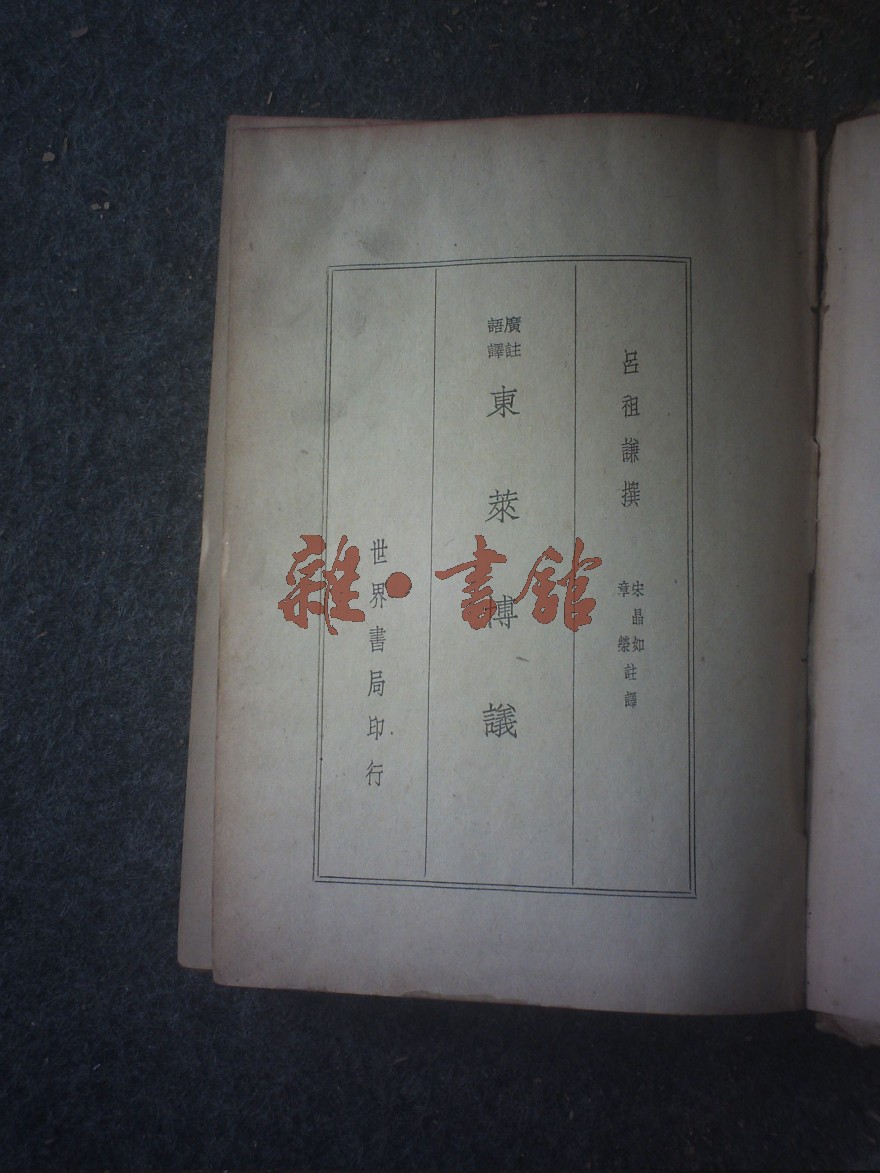 呂祖謙撰
宋晶如
章榮
註譯
廣註
語譯
東萊博議
世界書局印行
雜·書館